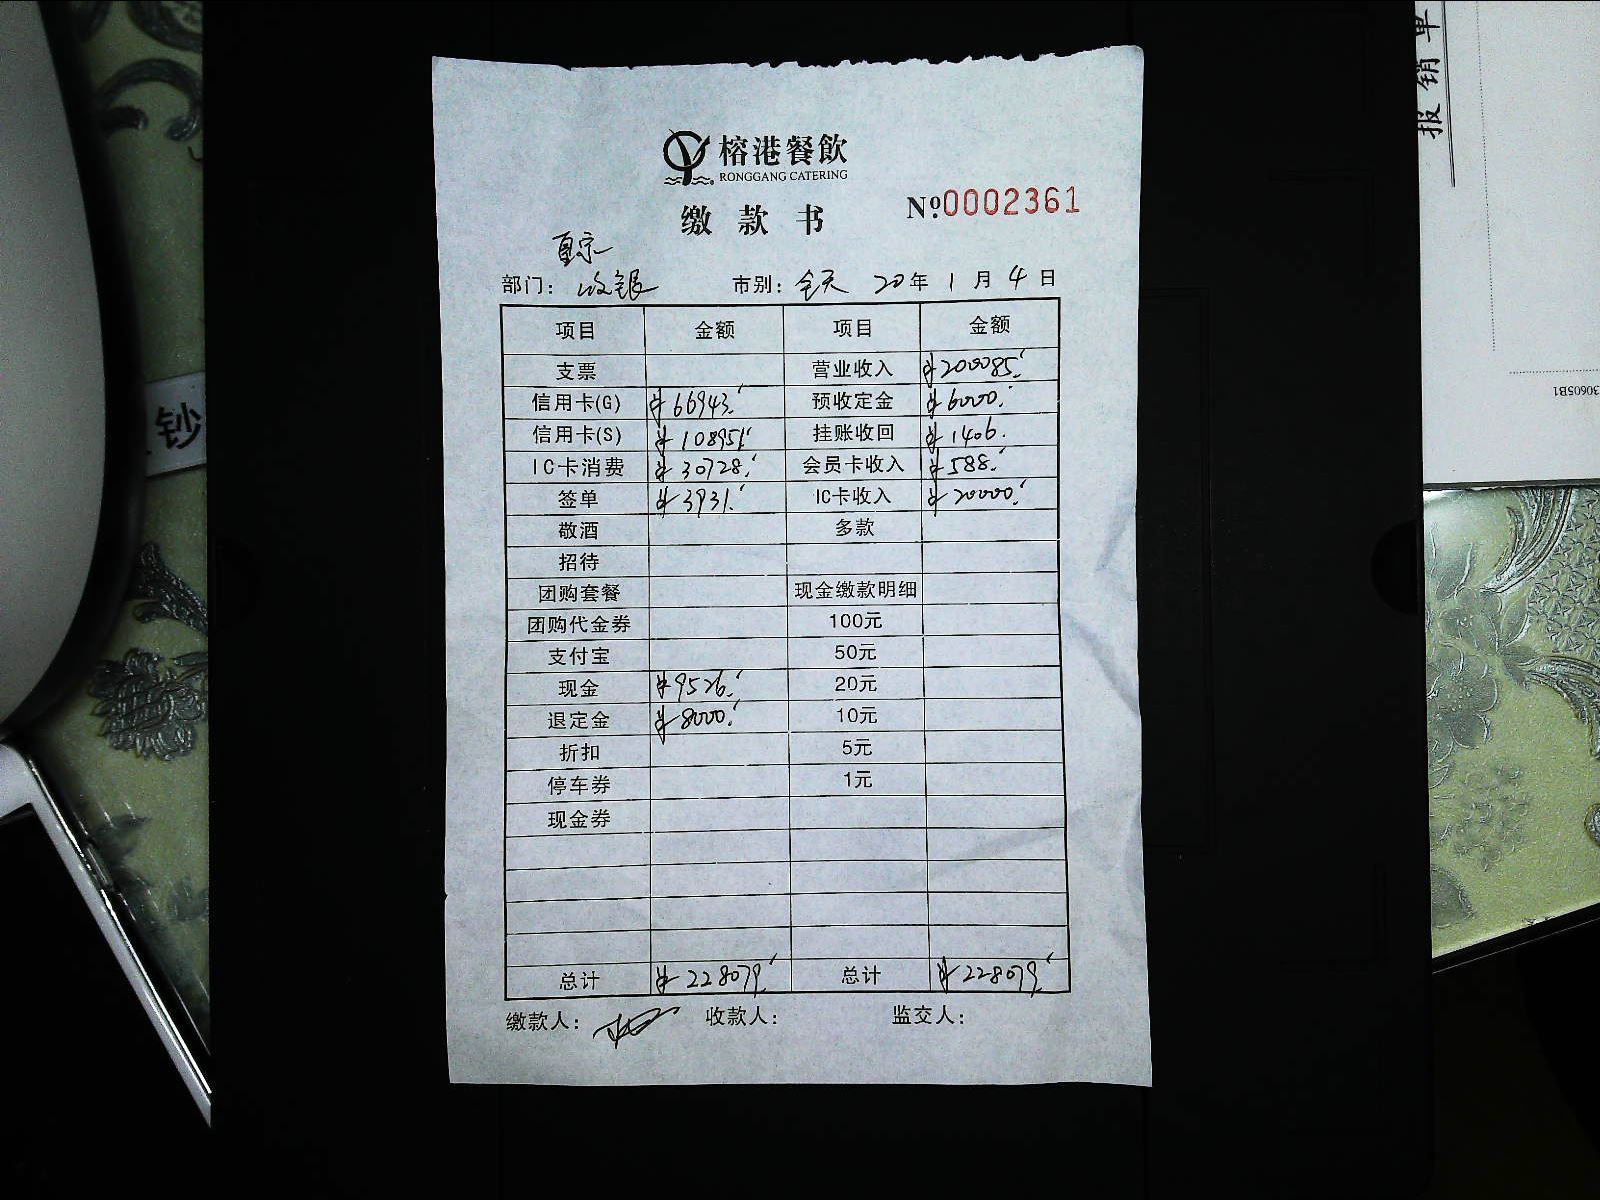 榕港餐飲
RONGGANG CATERING
缴款书 №0002361
夏宗
部门：收银 市别：全天 20年1月4日
项目 金额 项目 金额
支票 营业收入 ¥200085.
信用卡(G) ¥66943. 预收定金 ¥6000.
信用卡(S) ¥108951. 挂账收回 ¥1406.
IC卡消费 ¥30728. 会员卡收入 ¥588.
签单 ¥3931. IC卡收入 ¥20000.
敬酒 多款
招待
团购套餐 现金缴款明细
团购代金券 100元
支付宝 50元
现金 ¥9526. 20元
退定金 ¥8000. 10元
折扣 5元
停车券 1元
现金券
总计 ¥228079. 总计 ¥228079.
缴款人： 收款人： 监交人：
报销单
30605B1
钞